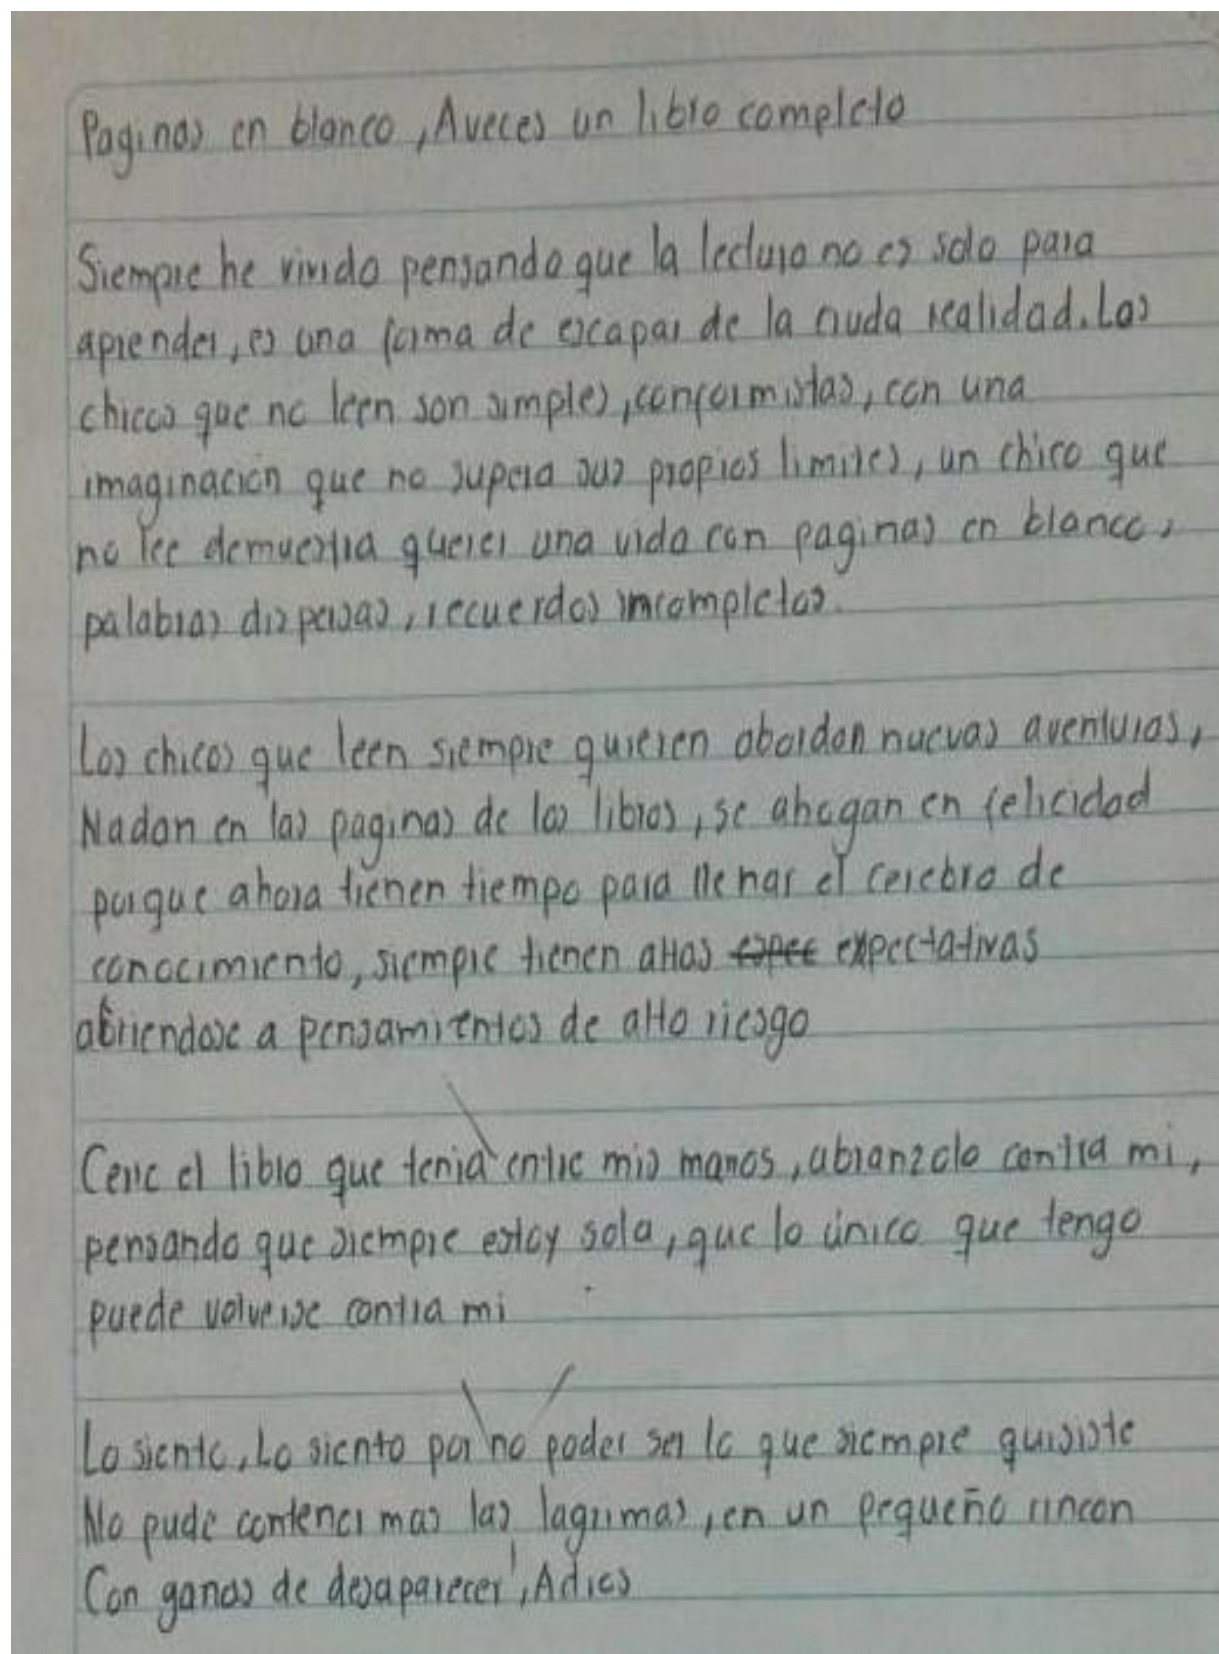 Paginas en blanco, Aveces un libro completo
Siempre he vivido pensando que la lectura no es solo para
aprender, es una forma de escapar de la cruda realidad. Los
chicos que no leen son simples, conformistas, con una
imaginacion que no supera sus propios limites, un chico que
no lee demuestra querer una vida con paginas en blanco,
palabras dispersas, recuerdos incompletos.
Los chicos que leen siempre quieren abordan nuevas aventuras,
Nadan en las paginas de los libros, se ahogan en felicidad
porque ahora tienen tiempo para llenar el cerebro de
conocimiento, siempre tienen altas expectativas
abriendose a pensamientos de alto riesgo
Cerre el libro que tenia entre mis manos, abranzolo contra mi,
pensando que siempre estoy sola, que lo único que tengo
puede volverse contra mi
Lo siento, Lo siento por no poder ser lo que siempre quisiste
No pude contener mas las lagrimas, en un pequeño rincon
Con ganas de desaparecer, Adios